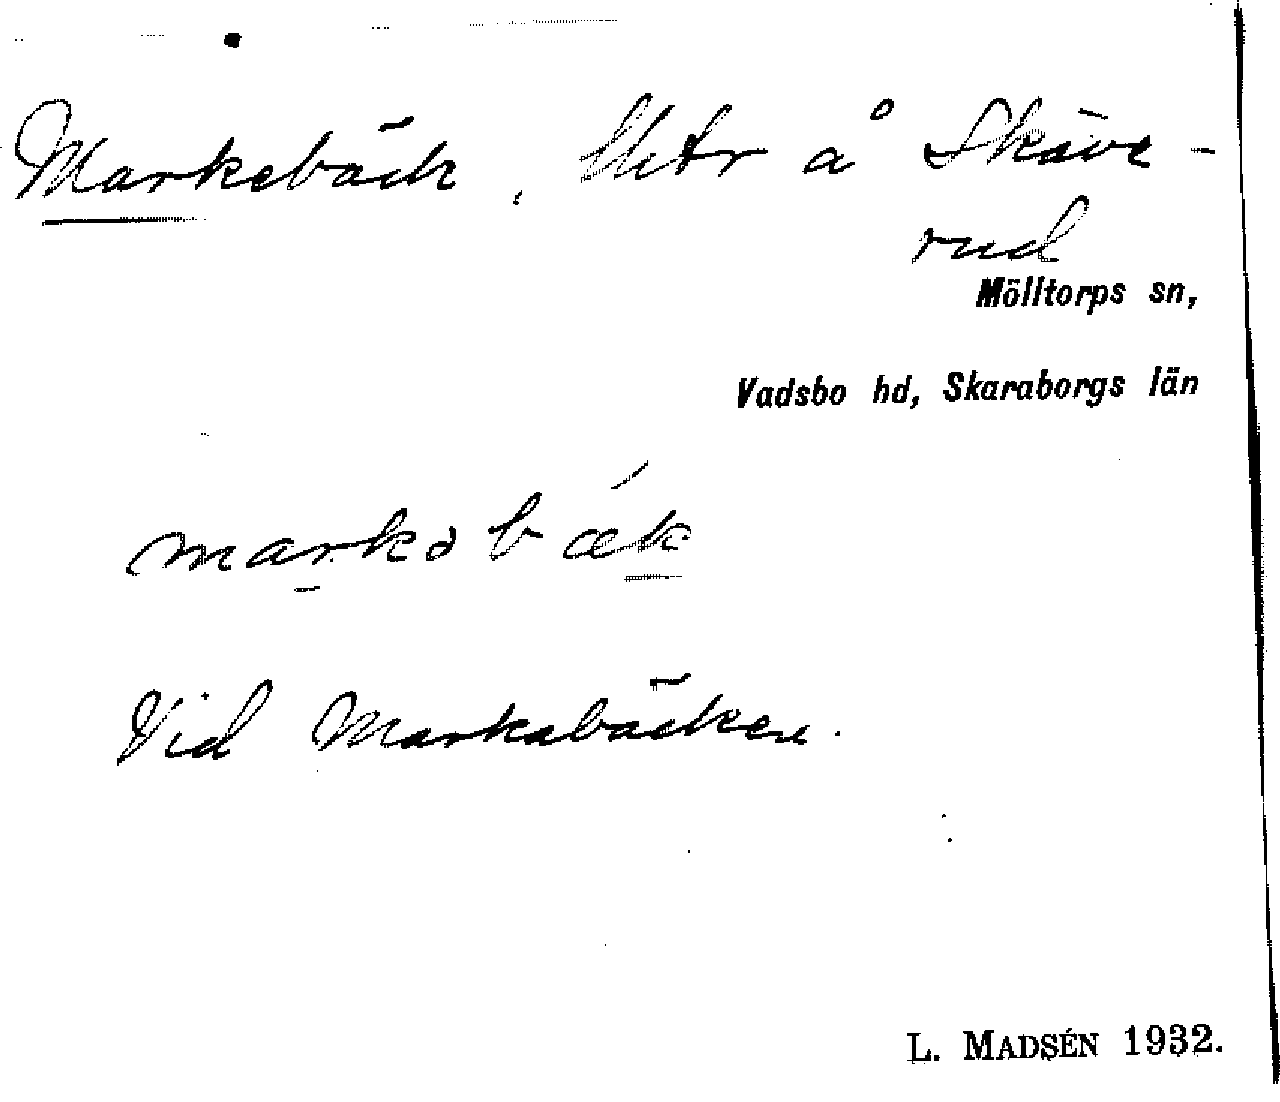 Markebäck, Utr å Skäve-
rud
Mölltorps sn,
Vadsbo hd, Skaraborgs län
markəbæ´k
Vid Markabäcken.
L. MADSÉN 1932.